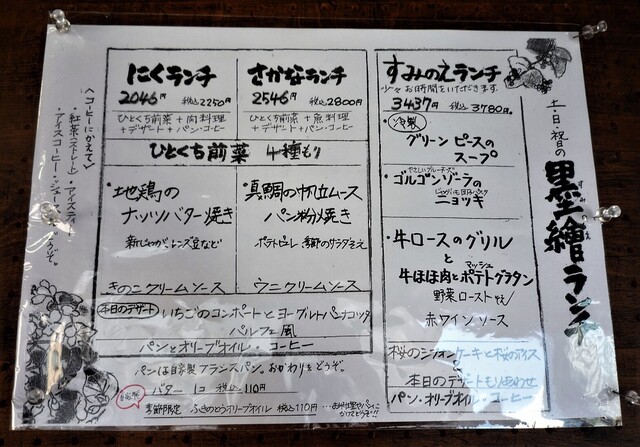 土・日・祝日の
墨繪ランチ
すみのえ
にくランチ
2046円 税込2250円
ひとくち前菜+肉料理
+デザート+パン・コーヒー
さかなランチ
2546円 税込2800円
ひとくち前菜+魚料理
+デザート+パン・コーヒー
ひとくち前菜 4種もり
・地鶏の
ナッツバター焼き
新じゃが、レンズ豆など
きのこクリームソース
・真鯛の帆立ムース
パン粉焼き
ポテトピューレ 季節のサラダそえ
ウニクリームソース
本日のデザート
いちごのコンポートとヨーグルトパンナコッタ
パルフェ風
パンとオリーブオイル・コーヒー
すみのえランチ
少々お時間をいただきます
3437円 税込3780円
・冷製
グリーンピースの
スープ
・やさしいブルーチーズ
ゴルゴンゾーラの
ニョッキ
・牛ロースのグリル
と
マッシュ
牛ほほ肉とポテトグラタン
野菜ローストそえ
赤ワインソース
桜のシフォンケーキと桜のアイス
と
本日のデザートもりあわせ
パン・オリーブオイル・コーヒー
パンは自家製フランスパン。おかわりをどうぞ。
自家製
バター 1コ 税込110円
季節限定 ふきのとうオリーブオイル 税込110円
〈コーヒーにかえて〉
・紅茶(ストレート)・アイスティー
・アイスコーヒー・ジュース